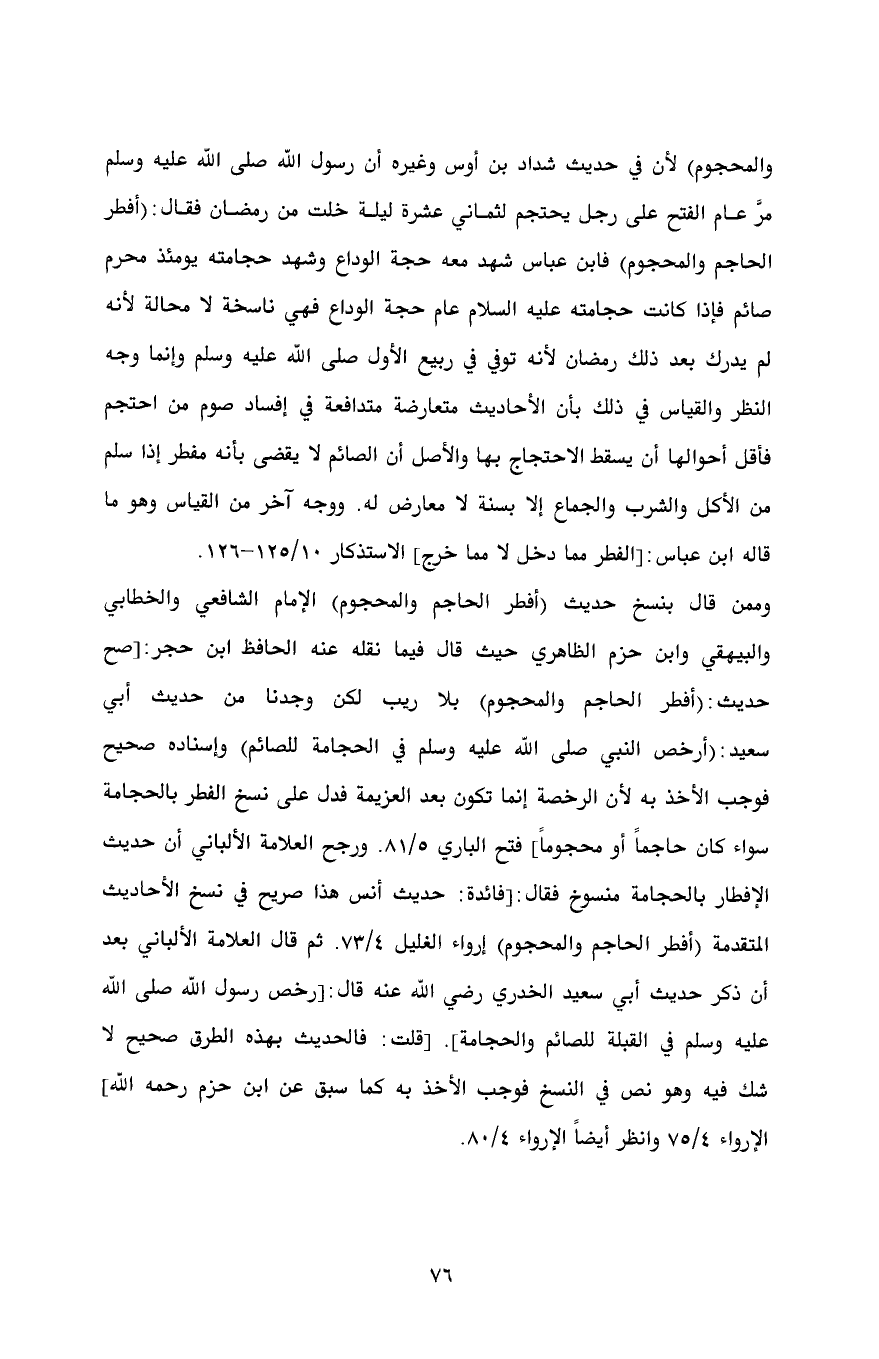 والمحجوم) لأن في حديث شداد بن أوس وغيره أن رسول الله صلى الله عليه وسلم
مرَّ عـام الفتح على رجل يحتجم لثمـاني عشرة ليلـة خلت من رمضـان فقـال:(أفطر
الحاجم والمحجوم) فابن عباس شهد معه حجة الوداع وشهد حجامته يومئذ محرم
صائم فإذا كانت حجامته عليه السلام عام حجة الوداع فهي ناسخة لا محالة لأنه
لم يدرك بعد ذلك رمضان لأنه توفي في ربيع الأول صلى الله عليه وسلم وإنما وجه
النظر والقياس في ذلك بأن الأحاديث متعارضة متدافعة في إفساد صوم من احتجم
فأقل أحوالها أن يسقط الاحتجاج بها والأصل أن الصائم لا يقضى بأنه مفطر إذا سلم
من الأكل والشرب والجماع إلا بسنة لا معارض له. ووجه آخر من القياس وهو ما
قاله ابن عباس:[الفطر مما دخل لا مما خرج] الاستذكار ١٢٥/١٠–١٢٦.
وممن قال بنسخ حديث (أفطر الحاجم والمحجوم) الإمام الشافعي والخطابي
والبيهقي وابن حزم الظاهري حيث قال فيما نقله عنه الحافظ ابن حجر:[صح
حديث:(أفطر الحاجم والمحجوم) بلا ريب لكن وجدنا من حديث أبي
سعيد:(أرخص النبي صلى الله عليه وسلم في الحجامة للصائم) وإسناده صحيح
فوجب الأخذ به لأن الرخصة إنما تكون بعد العزيمة فدل على نسخ الفطر بالحجامة
سواء كان حاجماً أو محجوماً] فتح الباري ٨١/٥. ورجح العلامة الألباني أن حديث
الإفطار بالحجامة منسوخ فقال:[فائدة: حديث أنس هذا صريح في نسخ الأحاديث
المتقدمة (أفطر الحاجم والمحجوم) إرواء الغليل ٧٣/٤. ثم قال العلامة الألباني بعد
أن ذكر حديث أبي سعيد الخدري رضي الله عنه قال:[رخص رسول الله صلى الله
عليه وسلم في القبلة للصائم والحجامة]. [قلت: فالحديث بهذه الطرق صحيح لا
شك فيه وهو نص في النسخ فوجب الأخذ به كما سبق عن ابن حزم رحمه الله]
الإرواء ٧٥/٤ وانظر أيضاً الإرواء ٨٠/٤.
٧٦